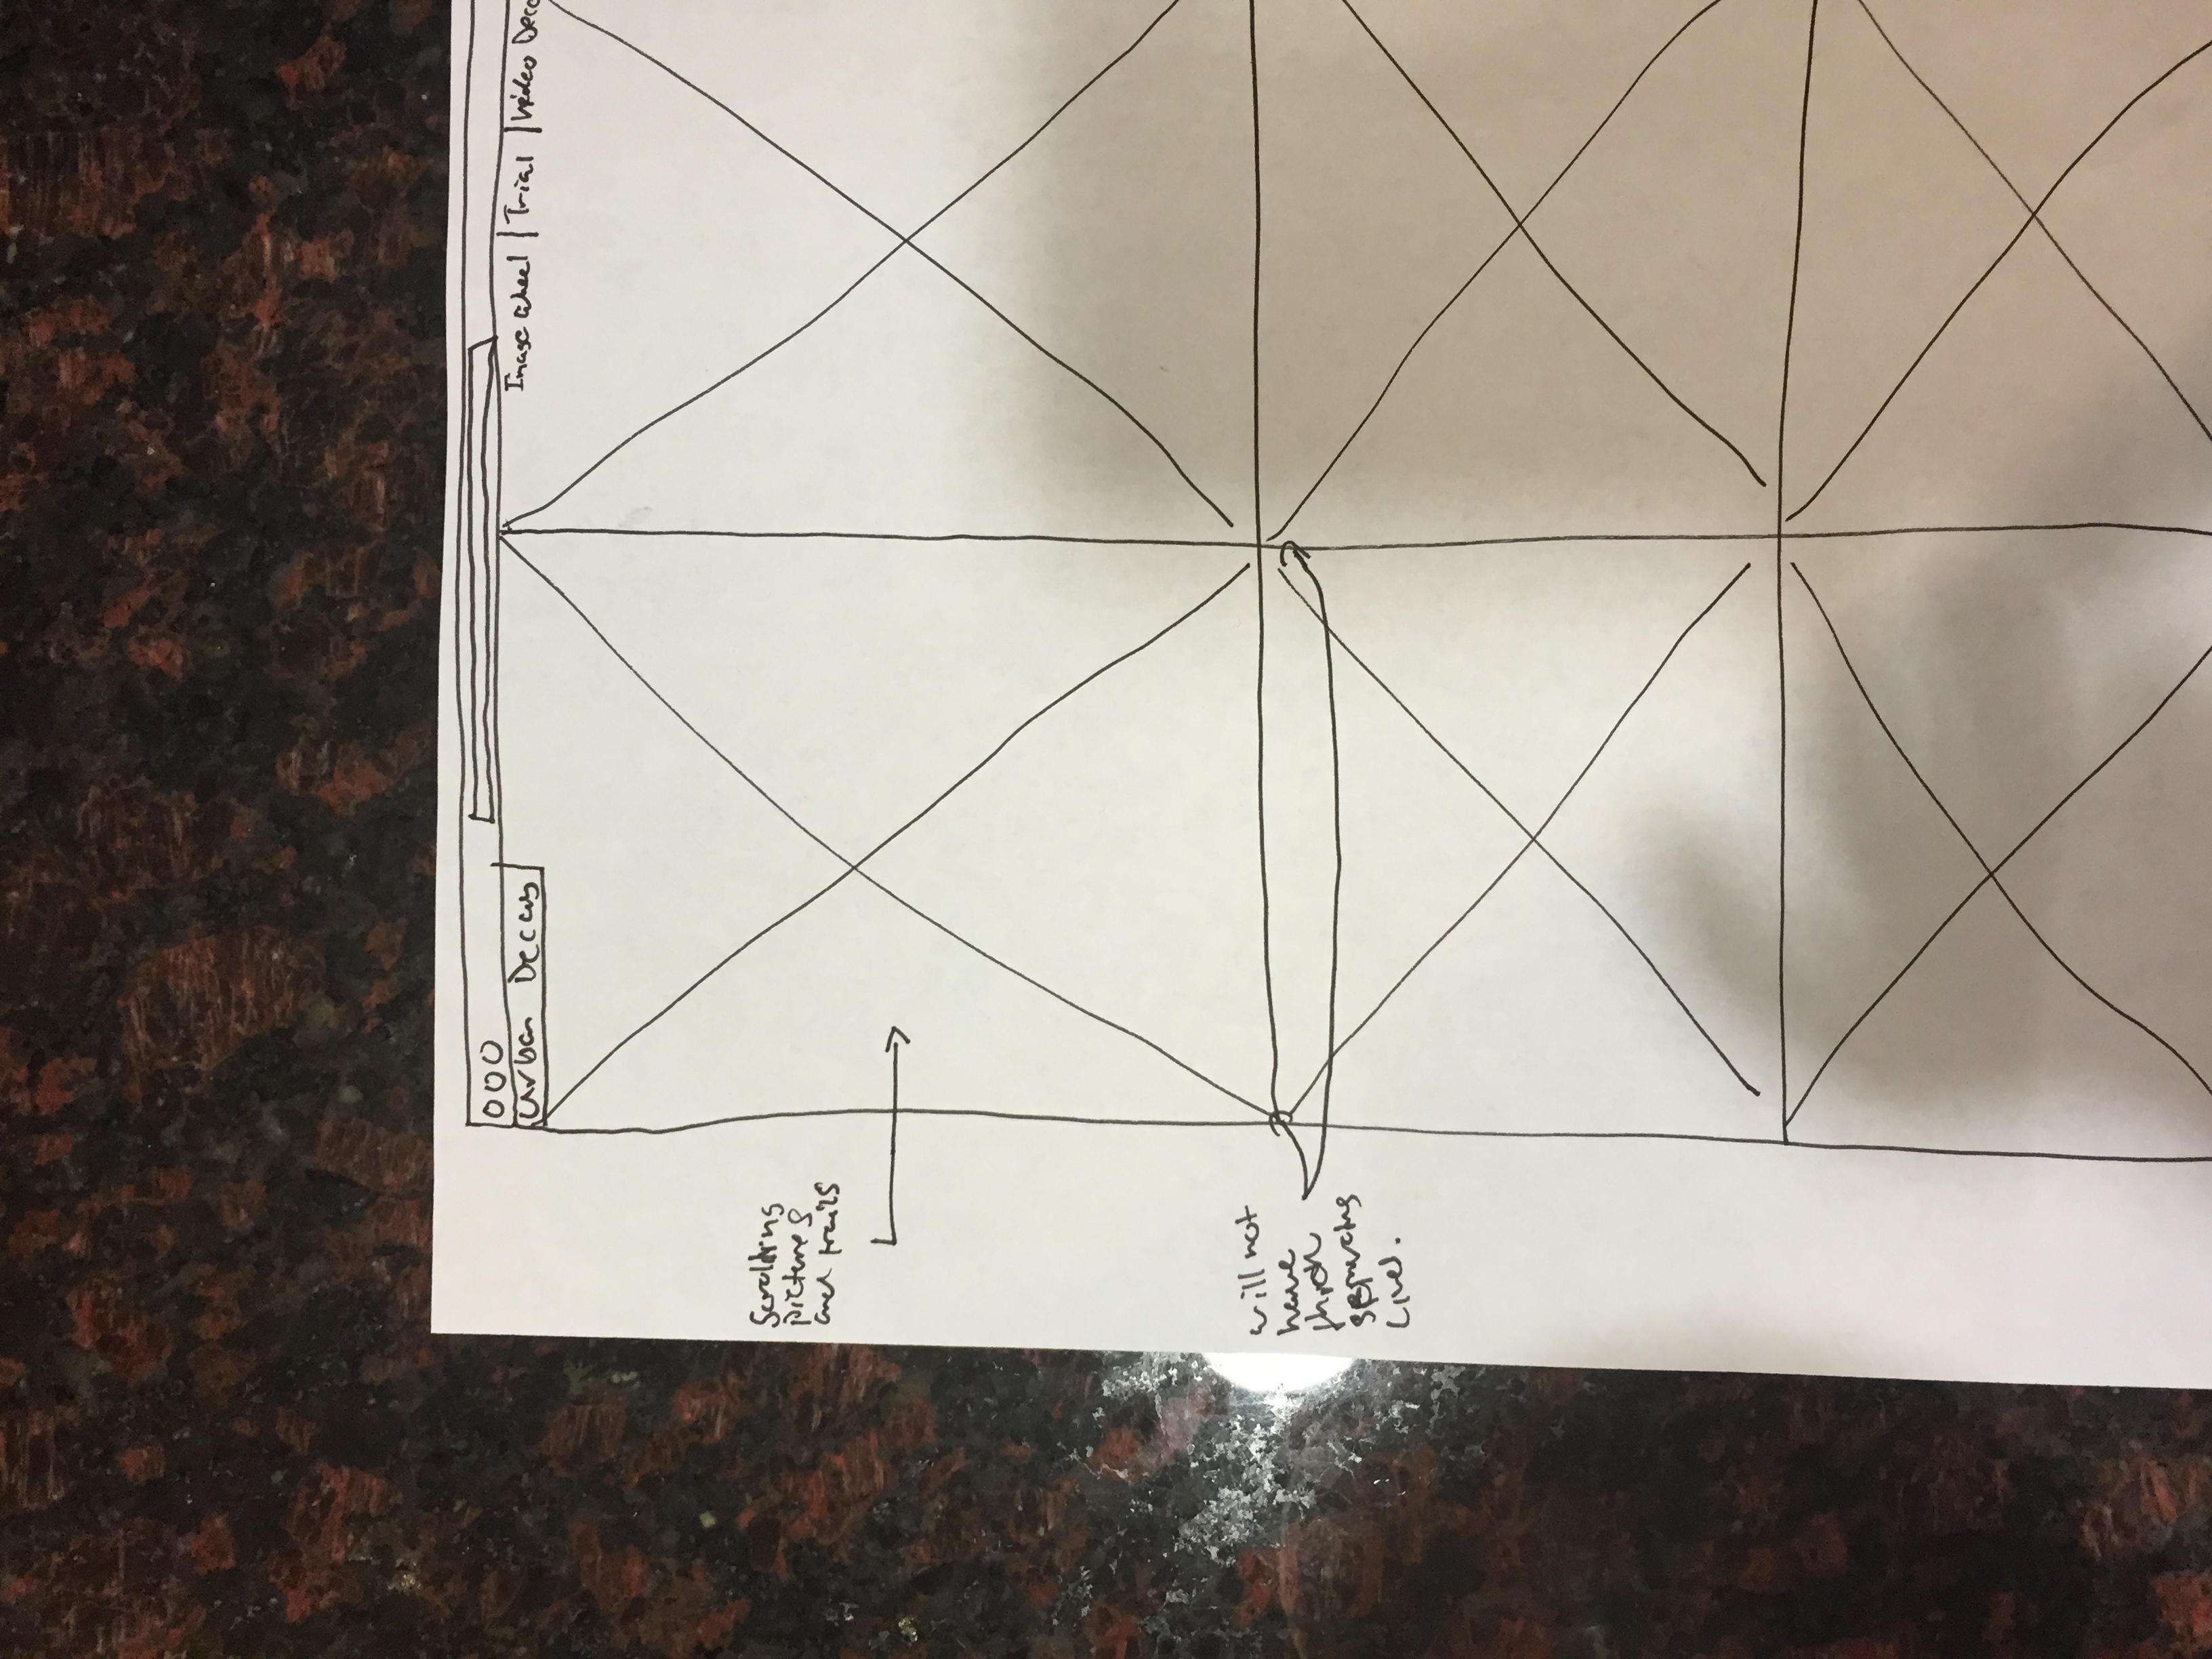 Urban Decay
Image wheel | Trial | Video Deca
Scrolling
pictures
and trails
will not
have
separating
lines.